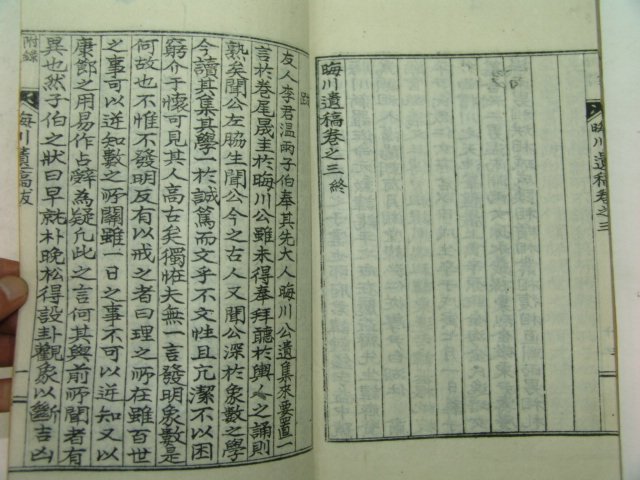 晦川遺稿卷之三
晦川遺稿卷之三終
跋
友人李君溫兩子伯奉其先大人晦川公遺集來要置一
言於卷尾晟圭於晦川公雖未得奉拜聽於輿人之誦則
熟矣聞公左脇生聞公今之古人又聞公深於象數之學
今讀其集其學一於誠篤而文乎不文性且亢潔不以困
窮介于懷可見其人高古矣獨恠夫無一言發明象數是
何故也不惟不發明反有以戒之者曰理之所在雖百世
之事可以逆知數之所關雖一日之事不可以逆知又以
康節之用易作占辭為疑凢此之言何其與前所聞者有
異也然子伯之狀曰早就朴晚松得設卦觀象以斷吉凶
附錄
晦川遺稿跋